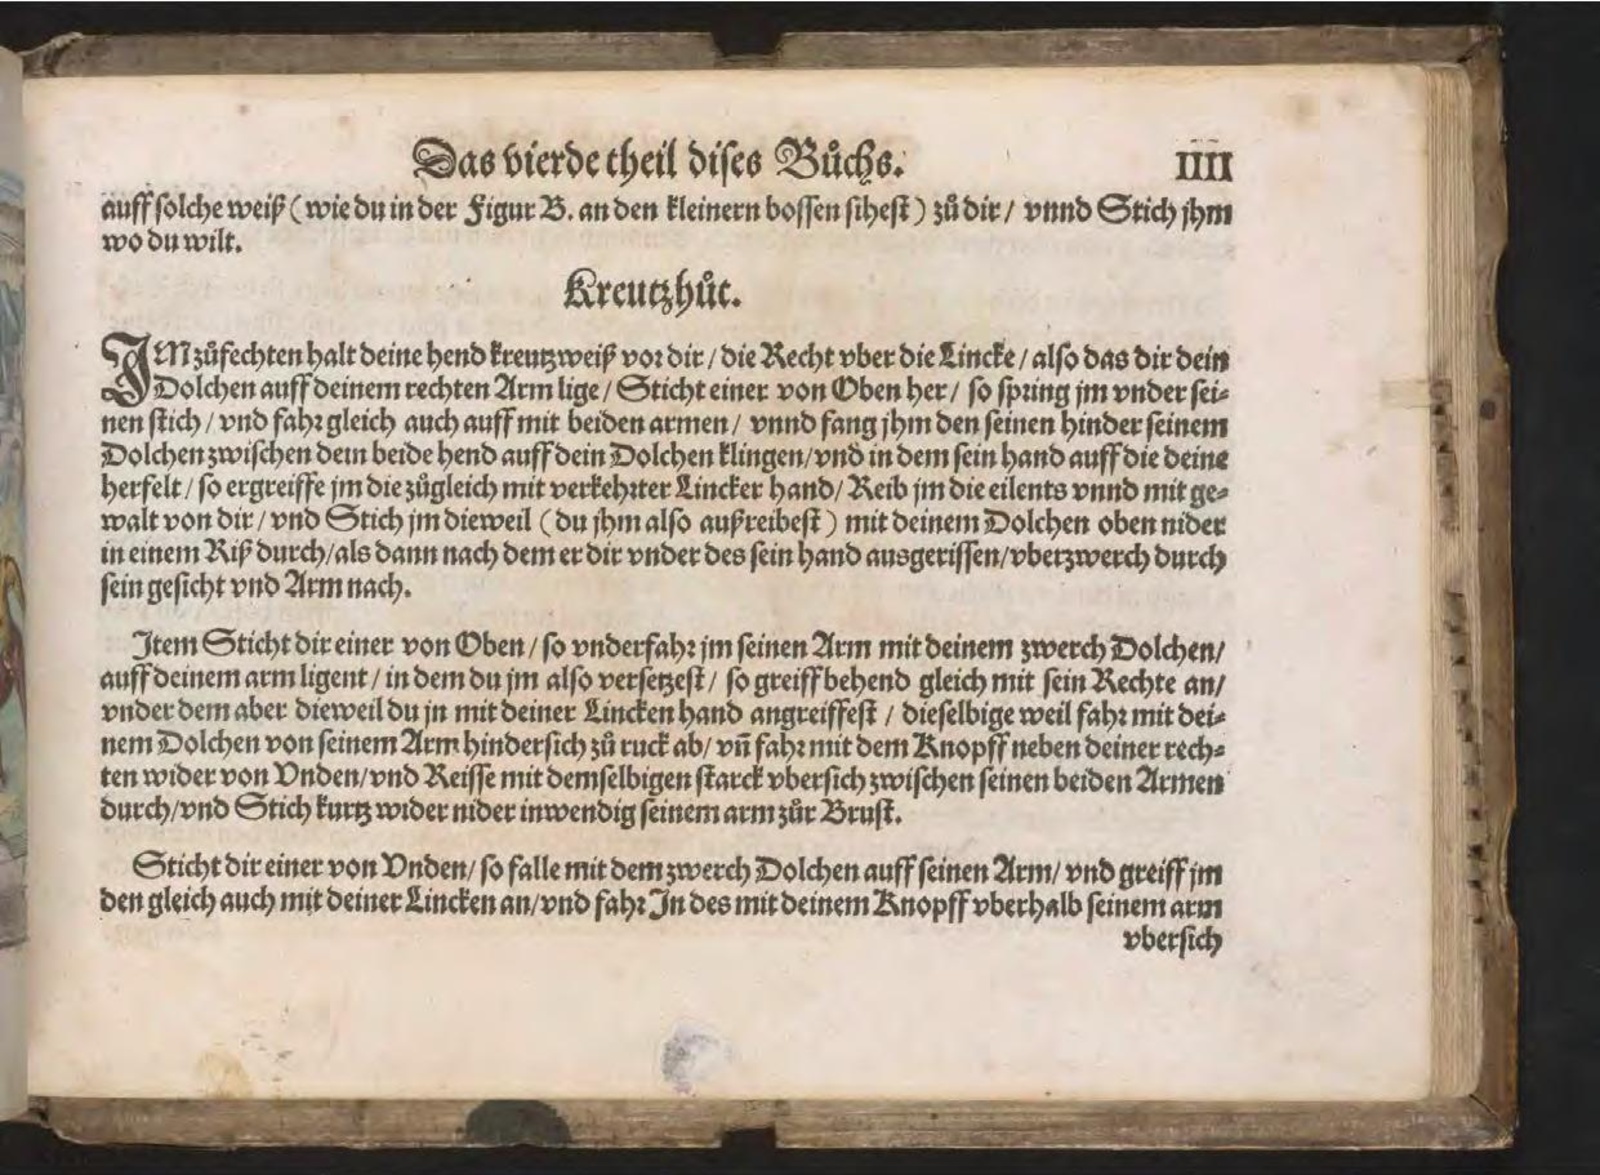 Das vierde theil dises Bůchs. IIII
auff solche weiß (wie du in der Figur B. an den kleinern bossen sihest) zů dir / vnnd Stich jhm
wo du wilt.
Kreutzhůt.
IM zůfechten halt deine hend kreutzweiß vor dir / die Recht vber die Lincke / also das dir dein
Dolchen auff deinem rechten Arm lige / Sticht einer von Oben her / so spring jm vnder sei-
nen stich / vnd fahr gleich auch auff mit beiden armen / vnnd fang jhm den seinen hinder seinem
Dolchen zwischen dein beide hend auff dein Dolchen klingen / vnd in dem sein hand auff die deine
herfelt / so ergreiffe jm die zůgleich mit verkehrter Lincker hand / Reib jm die eilents vnnd mit ge-
walt von dir / vnd Stich jm dieweil (du jhm also außreibest) mit deinem Dolchen oben nider
in einem Riß durch / als dann nach dem er dir vnder des sein hand ausgerissen / vberzwerch durch
sein gesicht vnd Arm nach.
Item Sticht dir einer von Oben / so vnderfahr jm seinen Arm mit deinem zwerch Dolchen /
auff deinem arm ligent / in dem du jm also versetzest / so greiff behend gleich mit sein Rechte an /
vnder dem aber dieweil du jn mit deiner Lincken hand angreiffest / dieselbige weil fahr mit dei-
nem Dolchen von seinem Arm hindersich zů ruck ab / vñ fahr mit dem Knopff neben deiner rech-
ten wider von Vnden / vnd Reisse mit demselbigen starck vbersich zwischen seinen beiden Armen
durch / vnd Stich kurtz wider nider inwendig seinem arm zůr Brust.
Sticht dir einer von Vnden / so falle mit dem zwerch Dolchen auff seinen Arm / vnd greiff jm
den gleich auch mit deiner Lincken an / vnd fahr In des mit deinem Knopff vberhalb seinem arm
vbersich